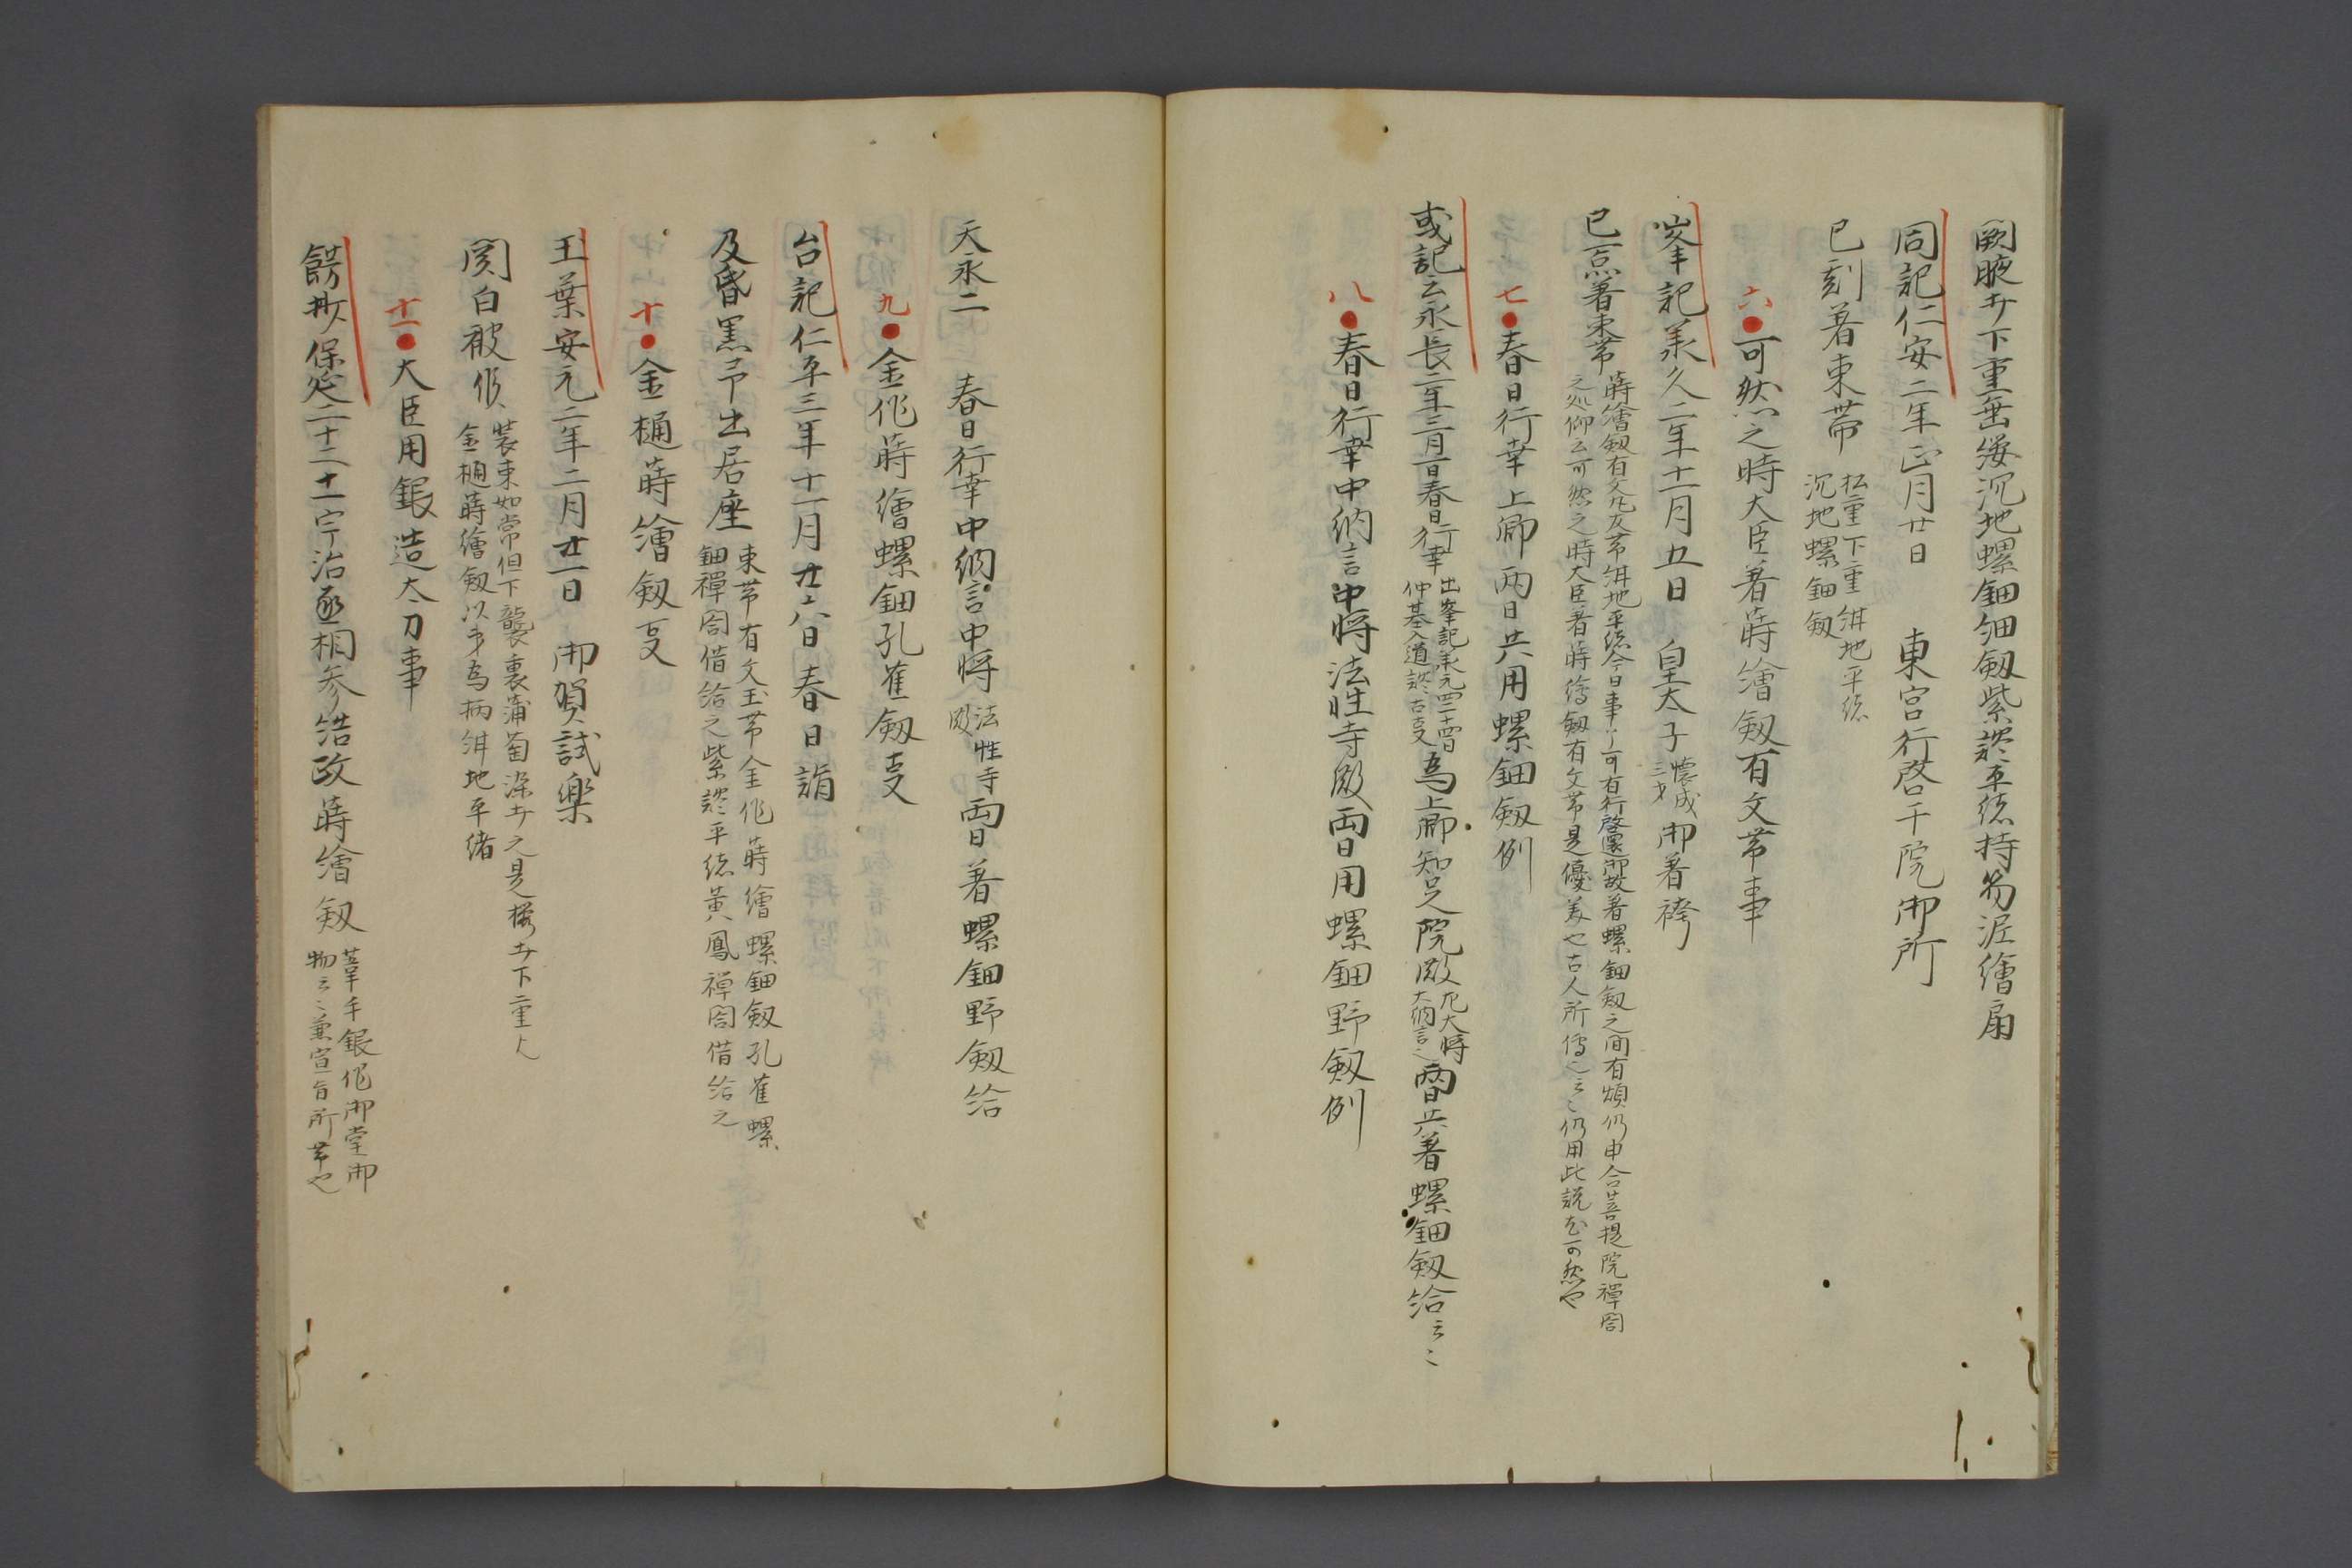 闕腋半下重無綾沉地螺鈿細劔紫淡平緒持笏泥繪扇
同記仁安二年正月廿日　東宮行啓于院御所
巳刻著束帯　松重下重紺地平緒
沉地螺鈿劔
六●可然之時大臣著蒔繪劔有文帯事
峯記承久二年十一月五日　皇太子懐成三才御著袴
巳一点著束帯　蒔繪劔有文丸友帯紺地平緒今日事了可有行啓還御故著螺鈿劔之間有煩仍申合菩提院禪閤
之処仰云可然之時大臣著蒔繪劔有文帯是優美也古人所傳之云々仍用此説尤可然也
七●春日行幸上卿両日共用螺鈿劔例
或記云永長二年三月一日春日行幸　出峯記承元四
仲基入道談古叓　為上卿知足院殿　左大将
大納言　両日共著螺鈿劔給云々
八●春日行幸中納言中将法性寺殿両日用螺鈿野劔例
天永二　春日行幸中納言中将　法性寺
殿　両日著螺鈿野劔給
九●金作蒔繪螺鈿孔雀劔叓
台記仁平三年十一月廿六日春日詣
及昏黒予出居座　束帯有文玉帯金作蒔繪螺鈿劔孔雀螺
鈿禪閤借給之紫淡平緒黄鳳禪閤借給之
十●金樋蒔繪劔叓
玉葉安元二年二月廿一日　御賀試樂
関白被候　装束如常但下襲裏蒲萄染半之是櫻半下重人
金樋蒔繪劔以牙為柄紺地平緒
十一●大臣用銀造太刀事
餝抄保延二十二十一宇治丞相参結政蒔繪劔　葦手銀作御堂御
物云々兼宣旨所帯也